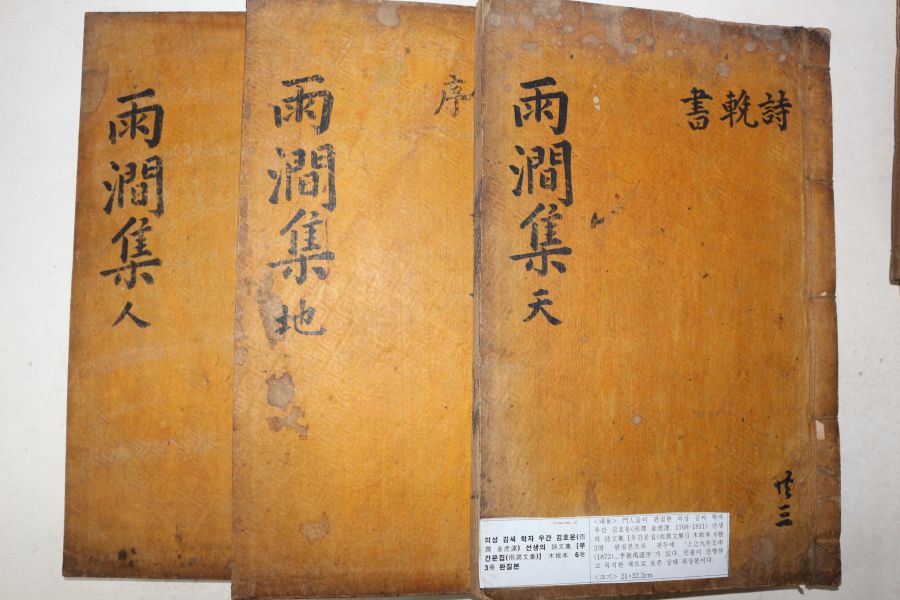 雨澗集 人
雨澗集 地
序
雨澗集 天
詩
輓
書
共三
의성 김씨 학자 우간 김호운(雨
澗 金虎運) 선생의 詩文集 [우
간문집(雨澗文集)] 木板本 6卷
3冊 완질본
<내용> 門人들이 편집한 의성 김씨 학자
우간 김호운(雨澗 金虎運, 1768-1811) 선생
의 詩文集 [우간문집(雨澗文集)] 木板本 6卷
3冊 완질본으로 권두에 '上之九年壬申
(1872)...李敦禹謹序'가 있다. 인출이 선명하
고 묵직한 책으로 보존 상태 최상본이다.
<크기> 21×32.2cm